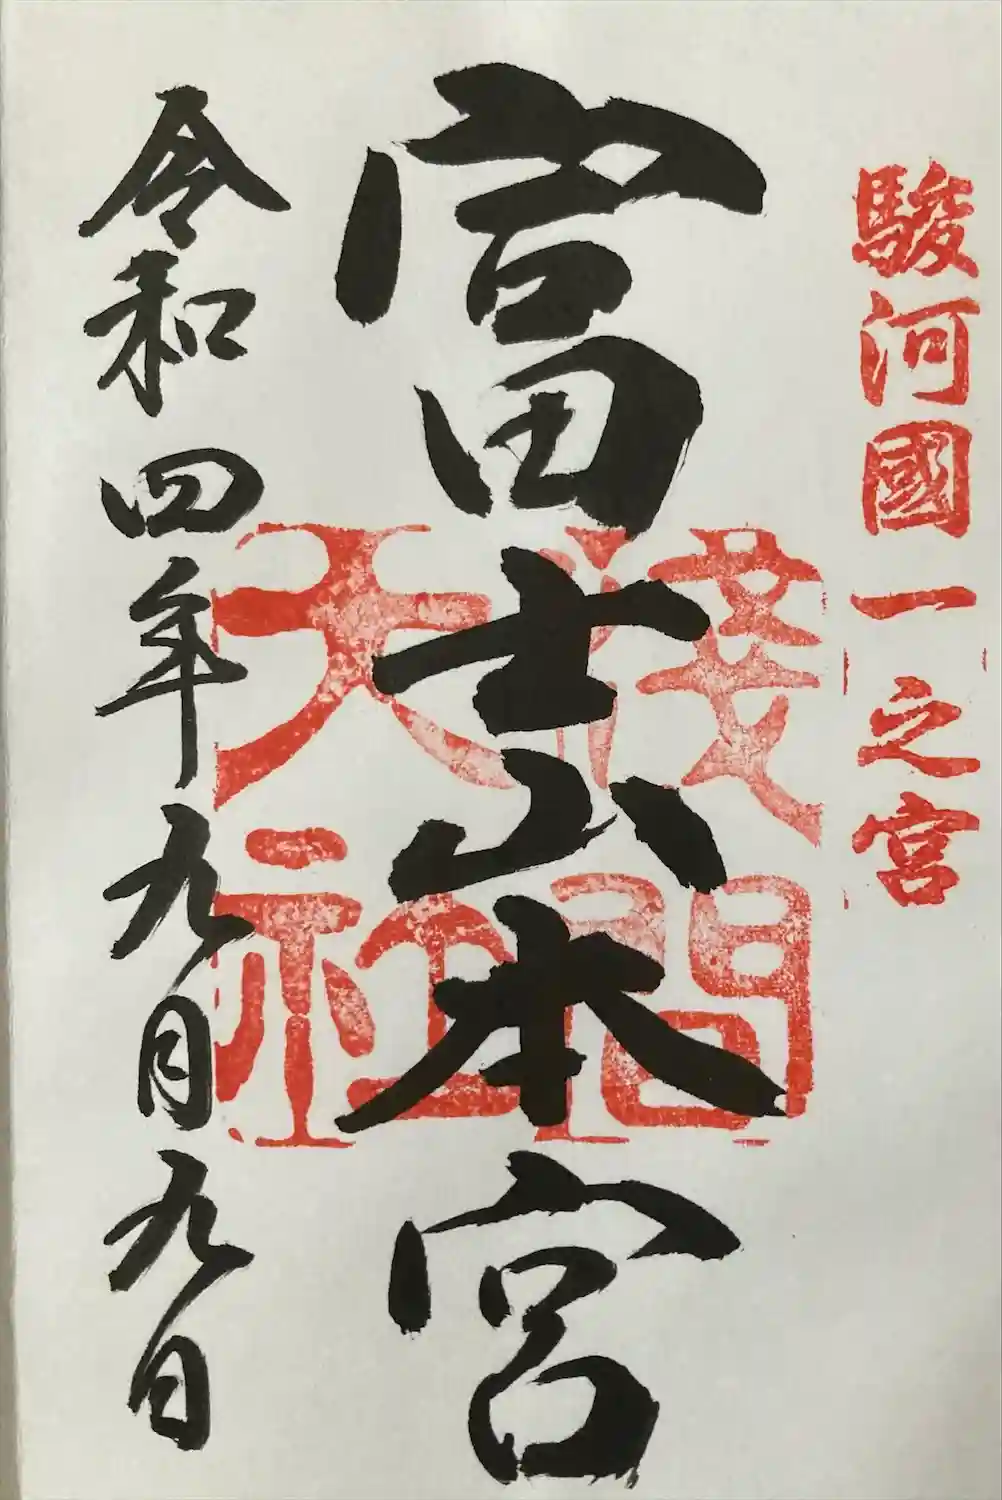 駿河國一之宮
富士山本宮
淺間
大社
令和四年九月九日